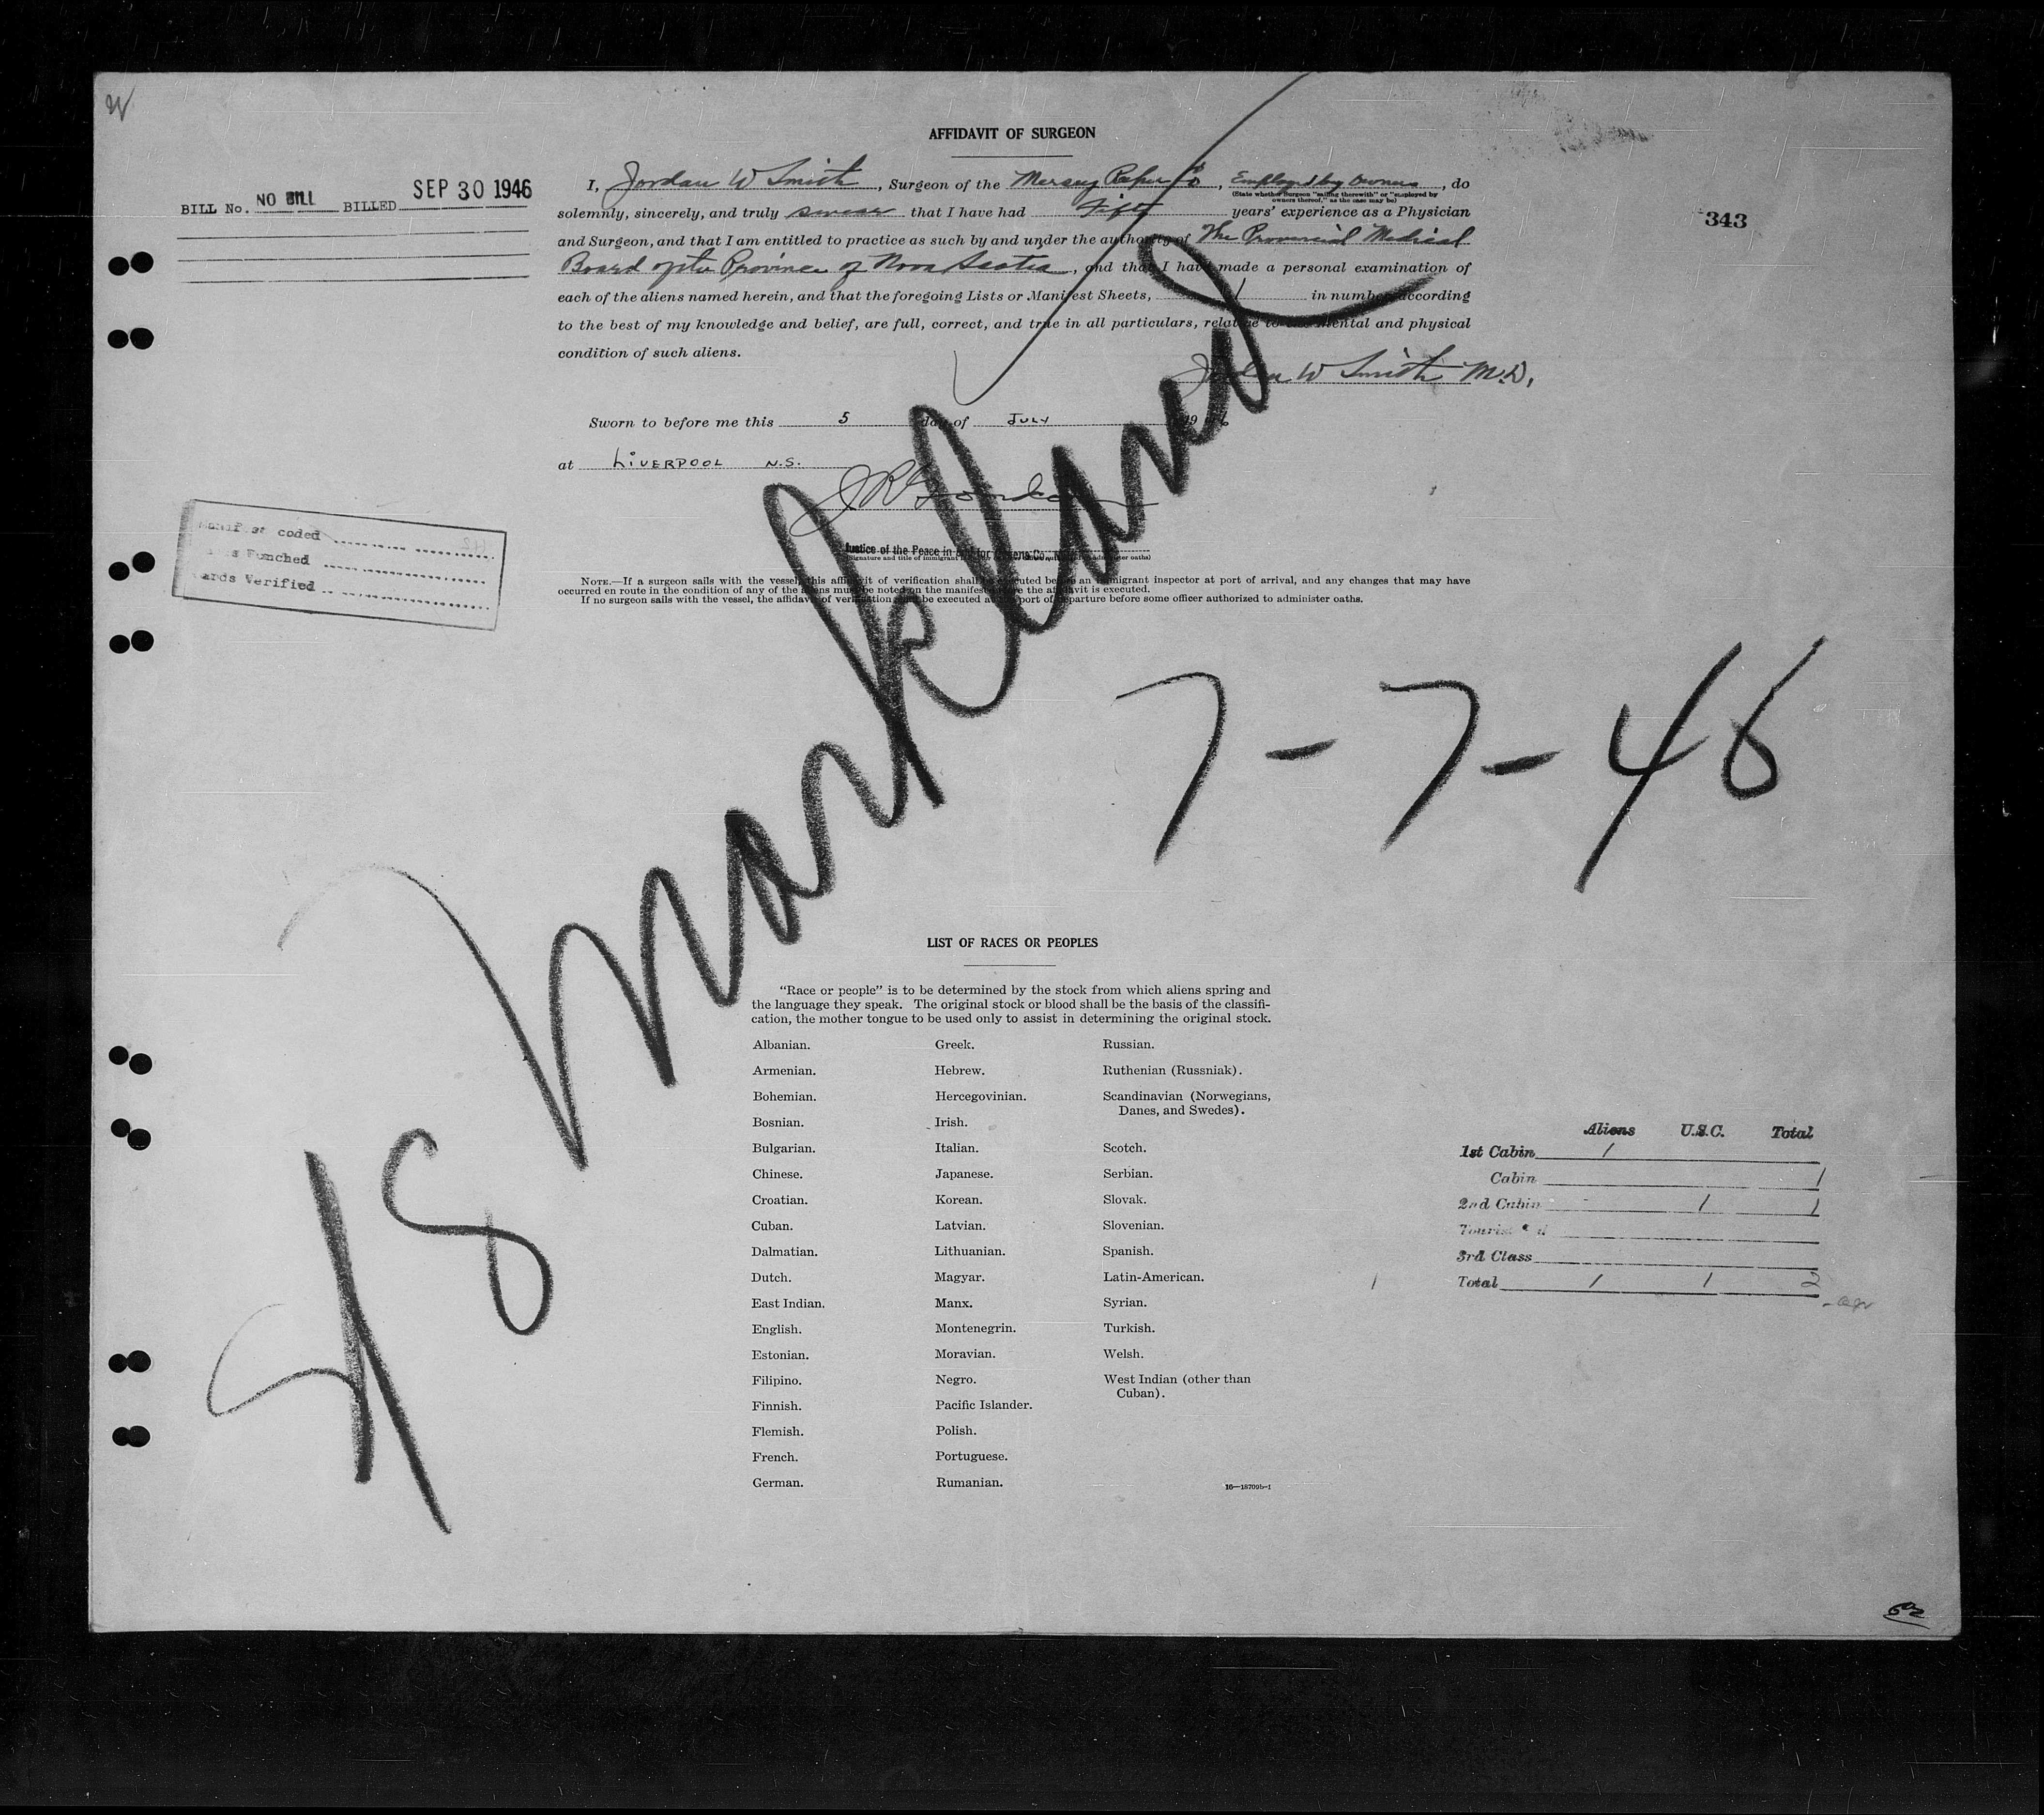 AFFIDAVIT OF SURGEON
BILL No. NO BILL BILLED SEP 30 1946
343
I, Jordan W Smith, Surgeon of the Mersey Paper Co, Employed by Owners, do
(State whether Surgeon "sailing therewith" or "employed by
owners thereof," as the case may be)
solemnly, sincerely, and truly swear that I have had Fifty years' experience as a Physician
and Surgeon, and that I am entitled to practice as such by and under the authority of The Provincial Medical
Board of the Province of Nova Scotia, and that I have made a personal examination of
each of the aliens named herein, and that the foregoing Lists or Manifest Sheets, 1 in number according
to the best of my knowledge and belief, are full, correct, and true in all particulars, relative to the mental and physical
condition of such aliens.
Jordan W Smith M.D.
Sworn to before me this 5 day of JULY 1946
at LIVERPOOL N.S.
Justice of the Peace in and for Queens Co.,
(Signature and title of immigrant
Manifest coded
Punched
Cards Verified
NOTE.—If a surgeon sails with the vessel, this affidavit of verification shall be executed before an immigrant inspector at port of arrival, and any changes that may have
occurred en route in the condition of any of the aliens must be noted on the manifest before the affidavit is executed.
If no surgeon sails with the vessel, the affidavit of verification shall be executed at the port of departure before some officer authorized to administer oaths.
SS Markland
7-7-46
LIST OF RACES OR PEOPLES
"Race or people" is to be determined by the stock from which aliens spring and
the language they speak. The original stock or blood shall be the basis of the classifi-
cation, the mother tongue to be used only to assist in determining the original stock.
Albanian.
Armenian.
Bohemian.
Bosnian.
Bulgarian.
Chinese.
Croatian.
Cuban.
Dalmatian.
Dutch.
East Indian.
English.
Estonian.
Filipino.
Finnish.
Flemish.
French.
German.
Greek.
Hebrew.
Hercegovinian.
Irish.
Italian.
Japanese.
Korean.
Latvian.
Lithuanian.
Magyar.
Manx.
Montenegrin.
Moravian.
Negro.
Pacific Islander.
Polish.
Portuguese.
Rumanian.
Russian.
Ruthenian (Russniak).
Scandinavian (Norwegians,
Danes, and Swedes).
Scotch.
Serbian.
Slovak.
Slovenian.
Spanish.
Latin-American.
Syrian.
Turkish.
Welsh.
West Indian (other than
Cuban).
16—18709b-1
Aliens U.S.C. Total
1st Cabin 1
Cabin 1
2nd Cabin 1 1
3rd Class
Total 1 1 2